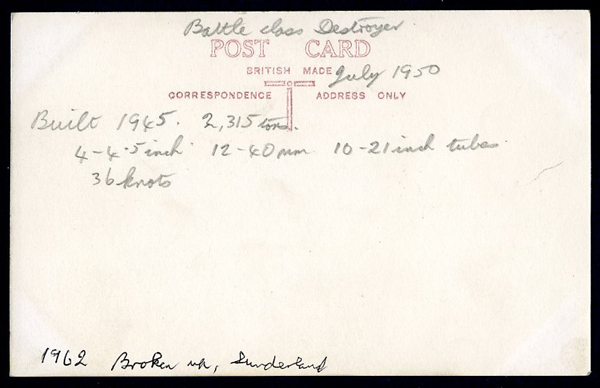 Battle class Destroyer
POST CARD
BRITISH MADE July 1950
CORRESPONDENCE ADDRESS ONLY
Built 1945. 2,315 tons.
4-4.5 inch 12-40mm 10-21 inch tubes.
36 knots
1962 Broken up, Sunderland